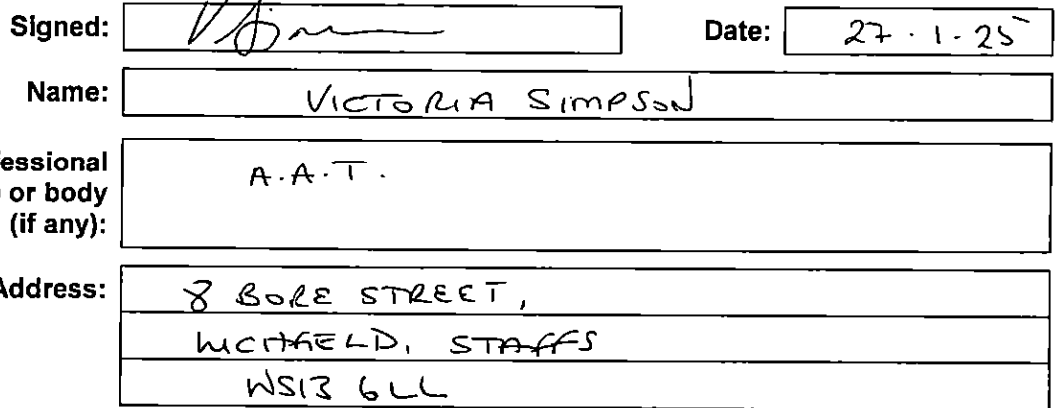 Signed: Date: 27.1.25
Name: VICTORIA SIMPSON
fessional
or body
(if any):
A.A.T.
Address: 8 BORE STREET,
LICHFIELD, STAFFS
WS13 6LL